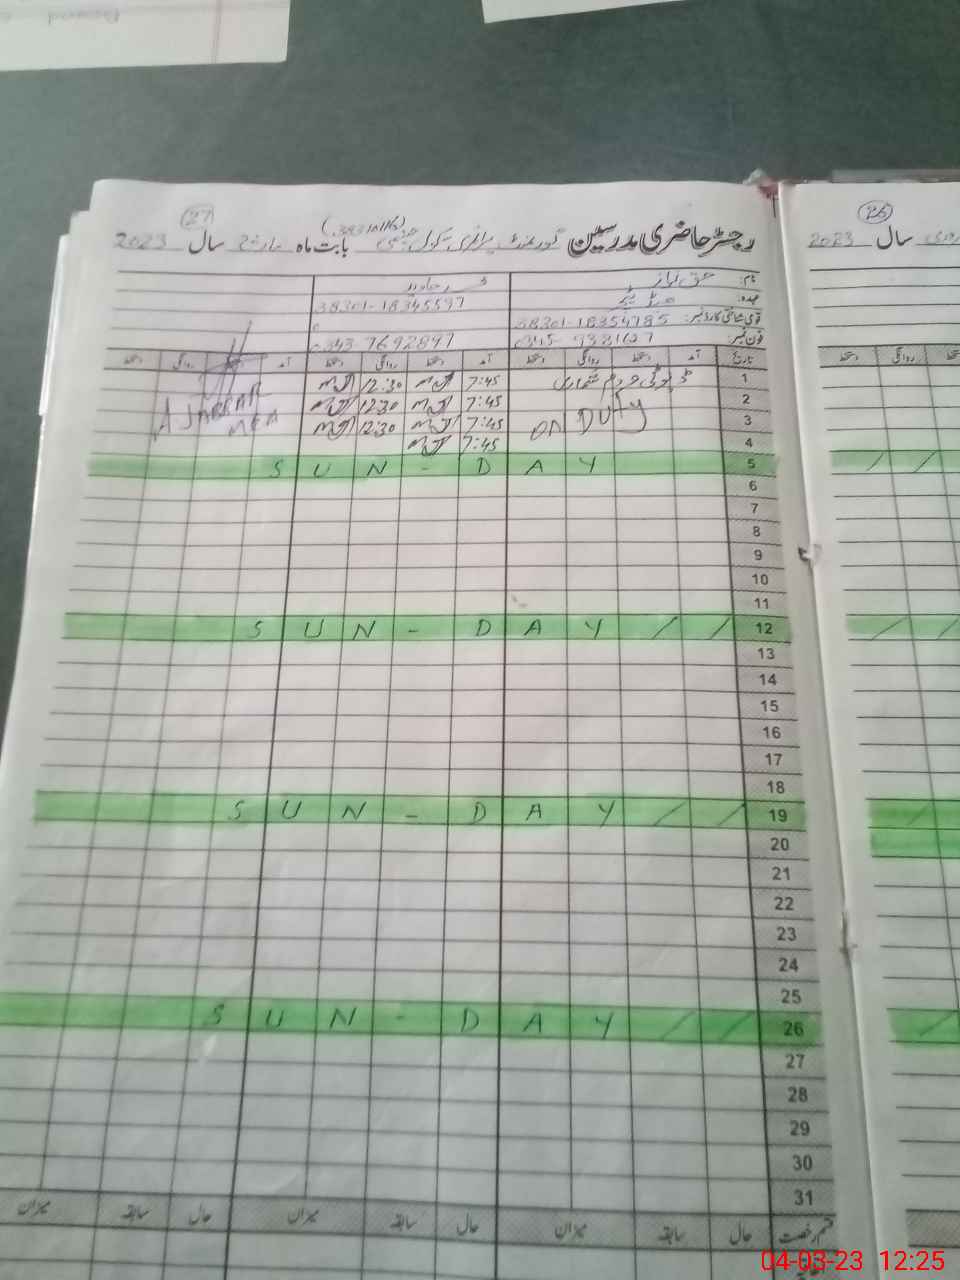 26
سال 2023
27
رجسٹر حاضری مدرسین گورنمنٹ پرائمری سکول بابت ماہ مارچ سال 2023
نام: حق نواز
عہدہ:
38301-18345597
قومی شناختی کارڈ نمبر: 38301-18354785
فون نمبر: 0343-7692897
تاریخ آمد دستخط روانگی دستخط آمد دستخط روانگی دستخط آمد روانگی دستخط
1 ڈیوٹی مردم شماری 7:45 12:30
2 7:45 12:30 A JABBAR
3 on Duty 7:45 12:30 MEA
4 7:45
5 SUN - DAY
6
7
8
9
10
11
12 SUN - DAY / /
13
14
15
16
17
18
19 SUN - DAY / /
20
21
22
23
24
25
26 SUN - DAY / /
27
28
29
30
31
قسم رخصت حال سابقہ میزان حال سابقہ میزان حال سابقہ میزان
04-03-23 12:25